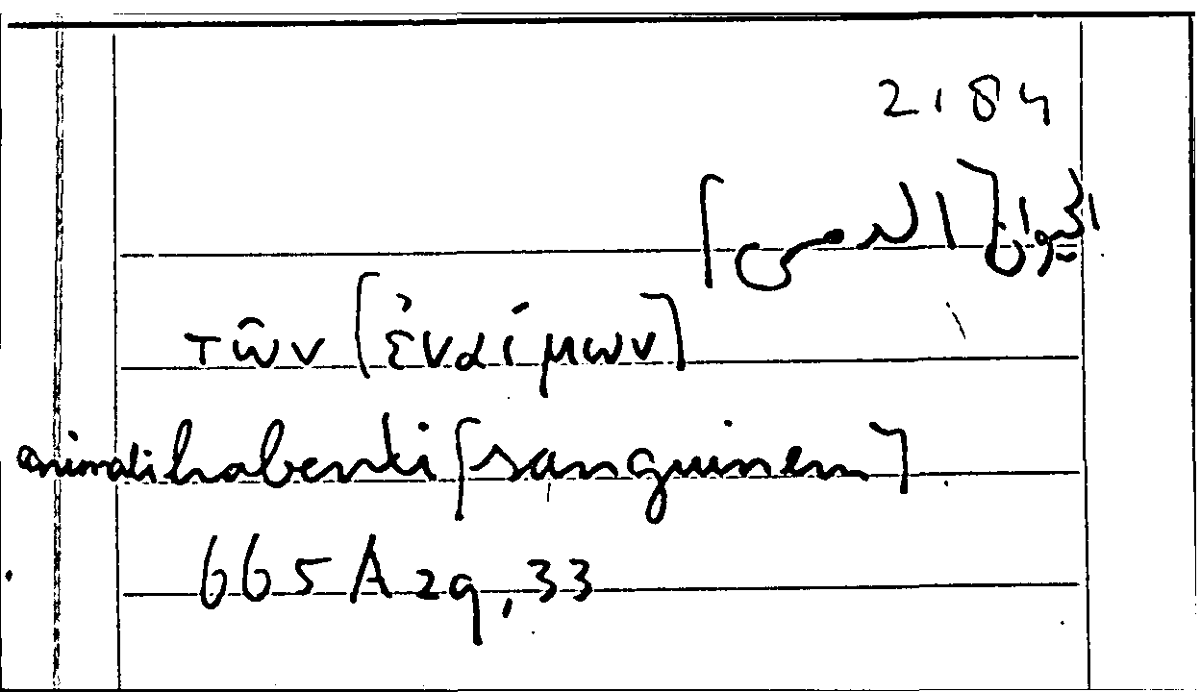 2184
الحيوان [الدمى]
τῶν [ἐναίμων]
animali habenti [sanguinem]
665 A 29, 33